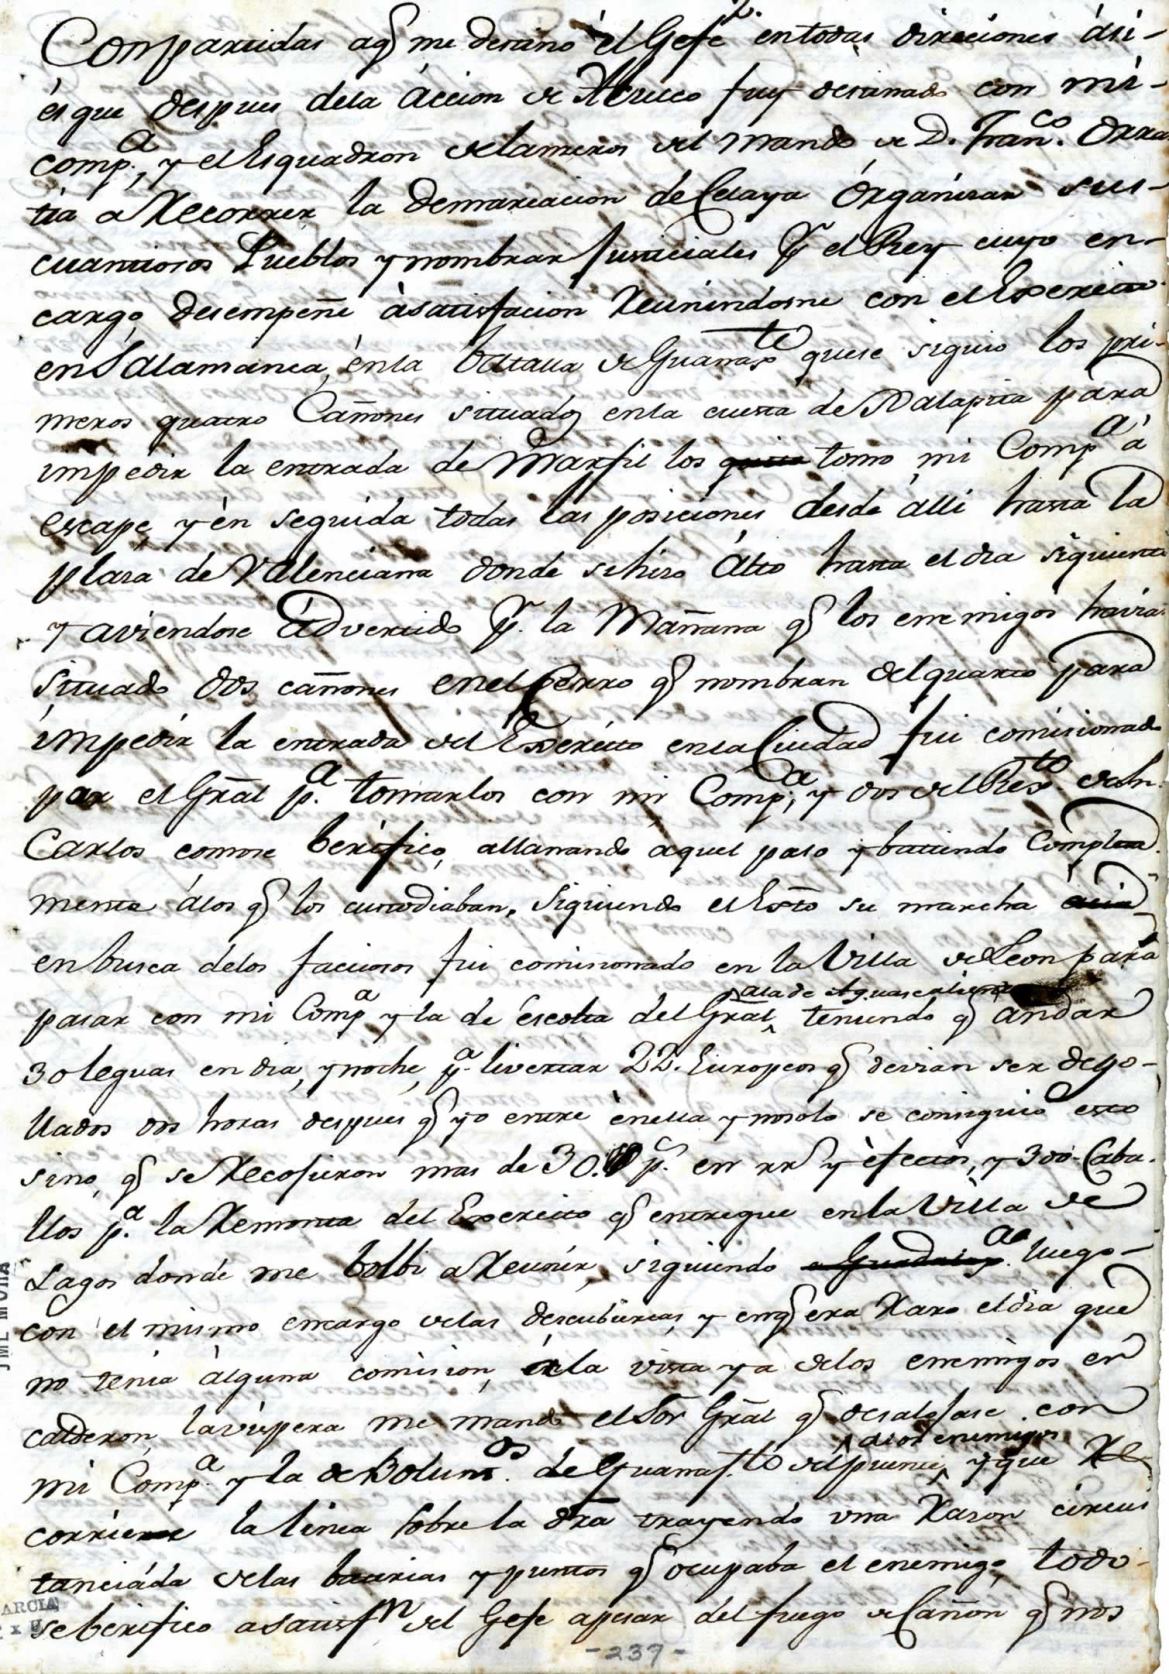 Conpartidas aq̃ me destinó el Gefe en todas direcíones ási-
és que despues dela ácción de Aculco fuy destinado con mi-
comp.a, y el Esquadron de lanzeros del mando de D. Fran.co Orra
tia a Recorrer la demarcacion de Celaya órganisar sus-
cuantiosos Pueblos y nombrar Justiciales pr el Rey cuyo en-
cargo, desempeñé àsatisfacion Reunindome con el Exercito
en Salamanca, én la Battalla de Guanax.to quese siguio los pri-
meros quatro Cañones situados enla cuesta de Xalapita para
impedir la entrada de Marfil los tomó mi Comp.a á
escape, y én seguida todas las posiciones desde álli hasta la
plasa de Valenciana donde sehiso Álto hasta el dia siguiente
y aviendose ádvertido pr. la Mañana q̃ los enemigos havia
situado dos cañones en el Cerro q̃ nombran del quarto para
ímpedir la entrada del Exército en la Ciudad fui comisionado
por el Grãl p.a tomarlos con mi Comp.a, y dos del Rex.to de Sn.
Carlos como se berífico, allanando aquel paso y battindo Completa
mente álos q̃ los custodiaban. Siguiendo el Exto su marcha
en busca delos facciosos fui comisionado en la Villa de Leon para
pasar con mi Comp.a y la de Escolta del Grãl, ala de Aguascalientes teniendo q̃ andar
30 leguas en dia, y noche, p.a livertar 22. Europeos q̃ devian ser dego-
llados dos horas despues q̃ yo entré ènella y nosolo se consiguió esto
sino, q̃ se Recojieron mas de 30. p.s en rrs y éfectos, y 300. Caba-
llos p.a la Remonta del Exercito q̃ entregue en la Villa de
Lagos donde me bolbi a Reunir, siguiendo luego-
con el mismo encargo delas descubiertas, y enq̃ era Raro el dia que
no tenia álguna comision, á la vista ya delos enemigos en
calderon, la vispera me mandó el Sor Grãl q̃ desalojase con
mi Comp.a y la de Bolunt.os de Guanaj.to del puente, alos enemigos y que Re-
corriese la linea sobre la dra trayendo una Rason círcuns
tanciáda delas baterias y puntos q̃ ocupaba el enemigo, todo-
seberifico asatisf.n del Gefe apesar del fuego de Cañon q̃ nos
-237-